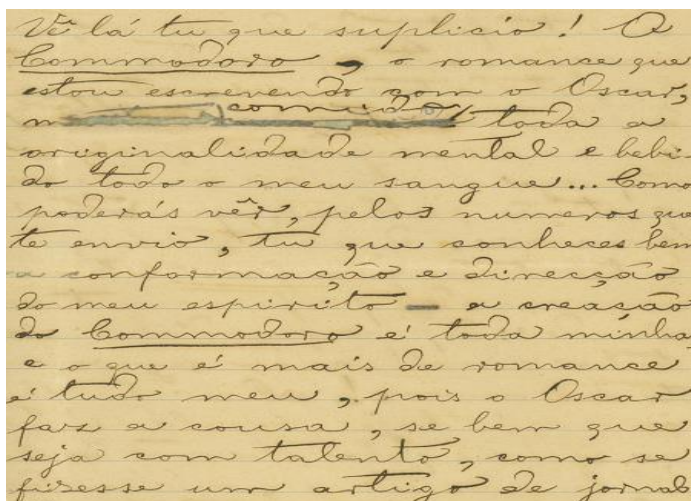 Vê lá tu que suplicio! O
Commodoro, o romance que
estou escrevendo com o Oscar,
comido toda a
originalidade mental e bebi-
do todo o meu sangue... Como
poderás vêr, pelos numeros que
te envio, tu, que conheces bem
a conformação e direcção
do meu espirito — a creação
do Commodoro é toda minha
e o que é mais de romance
é tudo meu, pois o Oscar
faz a cousa, se bem que
seja com talento, como se
fizesse um artigo de jornal